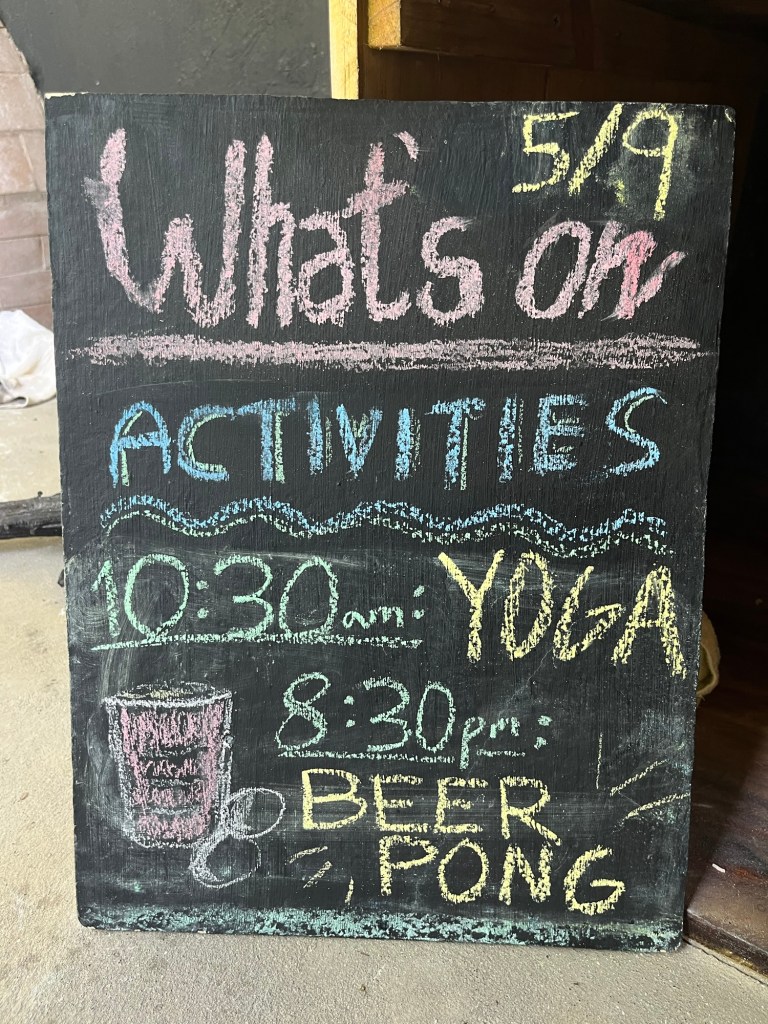 5/9
What's on
ACTIVITIES
10:30am: YOGA
8:30pm:
BEER
PONG